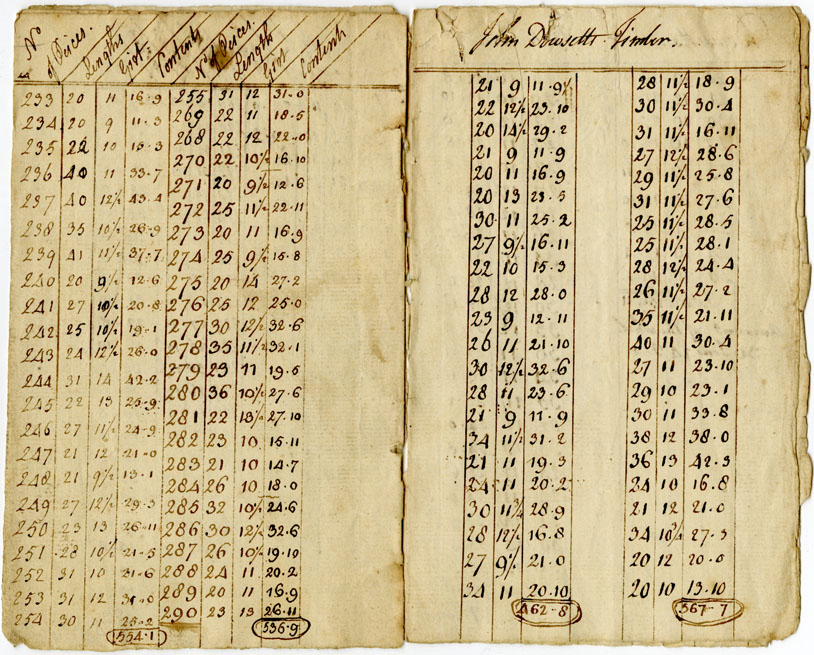 No of Peices. Lengths Girt Contents No of Peices. Lengths Girt Contents
233 20 11 16.9 255 31 12 31.0
234 20 9 11.3 269 22 11 18.5
235 22 10 15.3 268 22 12 22.0
236 40 11 33.7 270 22 10½ 16.10
237 40 12½ 43.4 271 20 9½ 12.6
238 35 10½ 26.9 272 25 11½ 22.11
239 41 11½ 37.7 273 20 11 16.9
240 20 9½ 12.6 274 25 9½ 15.8
241 27 10½ 20.8 275 20 14 27.2
242 25 10½ 19.1 276 25 12 25.0
243 24 12½ 26.0 277 30 12½ 32.6
244 31 14 42.2 278 35 11½ 32.1
245 22 13 25.9 279 23 11 19.5
246 27 11½ 24.9 280 36 10½ 27.6
247 21 12 21.0 281 22 13½ 27.10
248 21 9½ 13.1 282 23 10 15.11
249 27 12½ 29.3 283 21 10 14.7
250 23 13 26.11 284 26 10 18.0
251 28 10½ 21.5 285 32 10½ 24.6
252 31 10 21.6 286 30 12½ 32.6
253 31 12 31.0 287 26 10½ 19.10
254 30 11 25.2 288 24 11 20.2
289 20 11 16.9
290 23 13 26.11
554.1 536.9
John Dowsett Timber
21 9 11.9½ 28 11½ 18.9
22 12½ 23.10 30 11½ 30.4
20 14½ 29.2 31 11½ 16.11
21 9 11.9 27 12½ 28.6
20 11 16.9 29 11½ 25.8
20 13 23.5 31 11½ 27.6
30 11 25.2 25 11½ 28.5
27 9½ 16.11 25 11½ 28.1
22 10 15.3 28 12½ 24.4
28 12 28.0 26 11½ 27.2
23 9 12.11 35 11½ 21.11
26 11 21.10 40 11 30.4
30 12½ 32.6 27 11 23.10
28 11 23.6 29 10 23.1
21 9 11.9 30 11 33.8
34 11½ 31.2 38 12 38.0
21 11 19.3 36 13 42.3
24 11 20.2 24 10 16.8
30 11¾ 28.9 21 12 21.0
28 12½ 16.8 34 10¾ 27.3
27 9½ 21.0 20 12 20.0
34 11 20.10 20 10 13.10
462-8 567-7